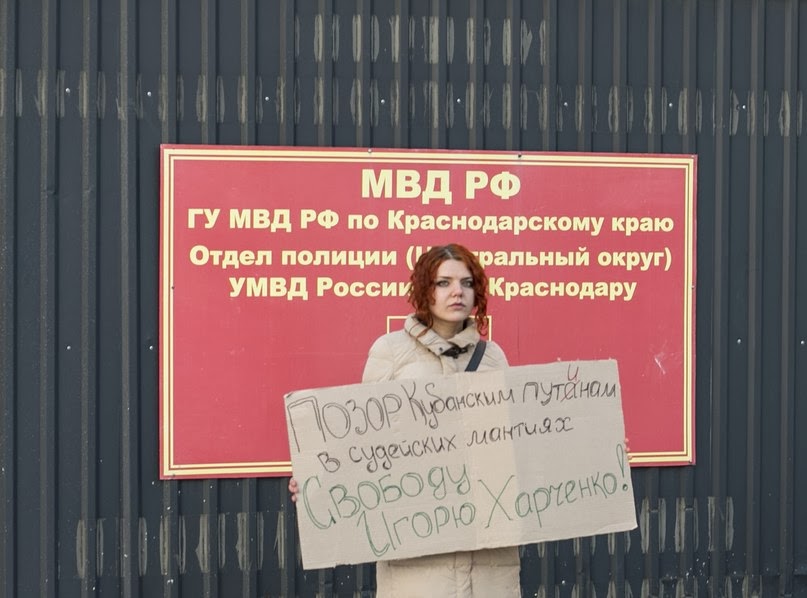 МВД РФ
ГУ МВД РФ по Краснодарскому краю
Отдел полиции (Центральный округ)
УМВД России Краснодару
и
ПОЗОР Кубанским ПУТАНАМ
в судейских мантиях
Свободу
Игорю Харченко!